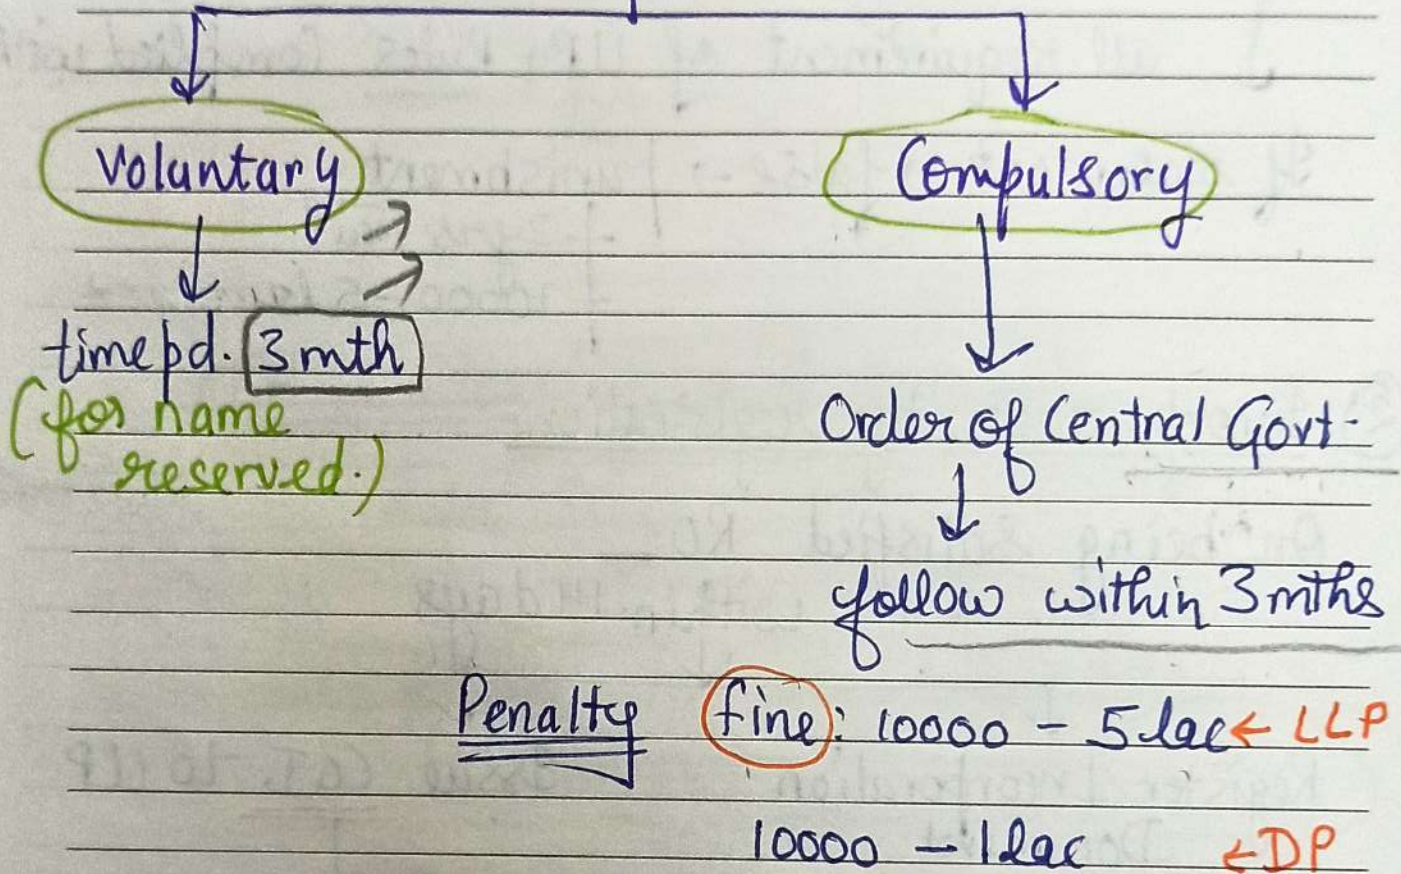 Voluntary
Compulsory
time pd. 3 mth
(for name
reserved.)
Order of Central Govt.
follow within 3 mths
Penalty fine: 10000 - 5 lac ← LLP
10000 - 1 lac ← DP